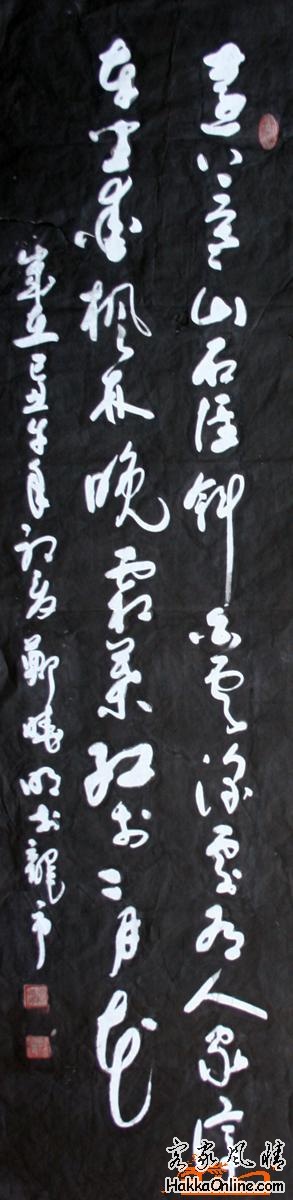 遠上寒山石徑斜白雲深處有人家停
車坐愛楓林晚霜葉紅於二月花
歲在己丑牛年初春鄭曉明書龍市
客家風情
HakkaOnline.com